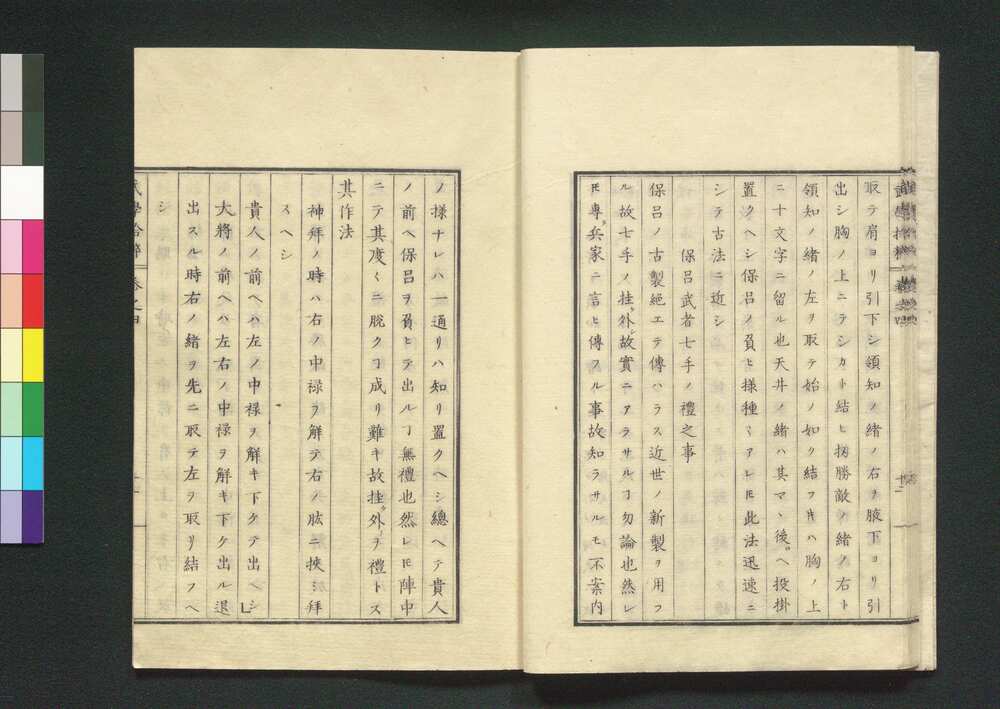 取テ肩ヨリ引下シ領知ノ緒ノ右ヲ腋下ヨリ引
出シ胸ノ上ニテシカト結ヒ扨勝敵ノ緒ノ右ト
領知ノ緒ノ左ヲ取テ始ノ如ク結フ𪜈ハ胸ノ上
ニ十文字ニ留ル也天井ノ緒ハ其マヽ後ヘ投掛
置クヘシ保呂ノ負ヒ様種〻アレ𪜈此法迅速ニ
シテ古法ニ近シ
保呂武者七手ノ禮之事
保呂ノ古製絕エテ傳ハラス近世ノ新製ヲ用フ
ル故七手ノ挂外故實ニアラサルヿ勿論也然レ
𪜈專兵家ニ言ヒ傳フル事故知ラサルモ不案内
ノ樣ナレハ一通リハ知リ置クヘシ總ヘテ貴人
ノ前ヘ保呂ヲ負ヒテ出ルヿ無禮也然レ𪜈陣中
ニテ其度〻ニ脫クヿ成リ難キ故挂外ヲ禮トス
其作法
神拜ノ時ハ右ノ中祿ヲ解テ右ノ肱ニ挾ミ拜
スヘシ
貴人ノ前ヘハ左ノ中祿ヲ解キ下ケテ出ヘシ
大將ノ前ヘハ左右ノ中祿ヲ解キ下ケ出ル退
出スル時右ノ緒ヲ先ニ取テ左ヲ取リ結フヘ
シ